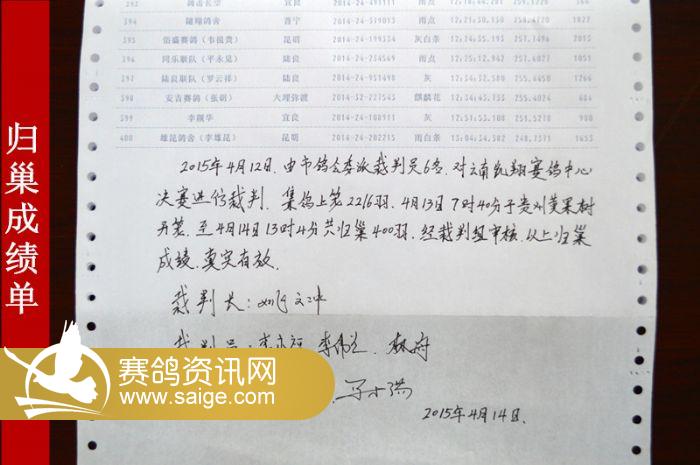 归巢成绩单
394 随翔鸽舍 普宁 2014-24-519013 雨点 12:21:30.150 258.4720 1827
395 佰盛赛鸽（韦祖贵） 昆明 2014-24-199334 灰白条 12:24:35.195 257.7496 2015
396 同乐联队（平永见） 陆良 2014-24-234549 雨点 12:25:12.942 257.6072
397 陆良联队（罗云祥） 陆良 2014-24-951498 灰 12:34:32.580 255.4458 1266
398 安吉赛鸽（张明） 大理弥渡 2014-32-227543 麒麟花 12:34:43.733 255.4024 604
399 李颜华 宜良 灰 12:51:31.639 251.5278 900
400 雄昆鸽舍（李雄昆） 昆明 2014-24-202215 雨白条 13:04:34.502 248.7371 1653
2015年4月12日，由市鸽会委派裁判员6名，对云南凯翔赛鸽中心
决赛进行裁判。集鸽上笼2216羽，4月13日7时40分于贵州黄果树
开笼，至4月14日13时4分共归巢400羽，经裁判组审核，以上归巢
成绩，真实有效。
裁判长：
裁判员：
2015年4月14日.
赛鸽资讯网
www.saige.com